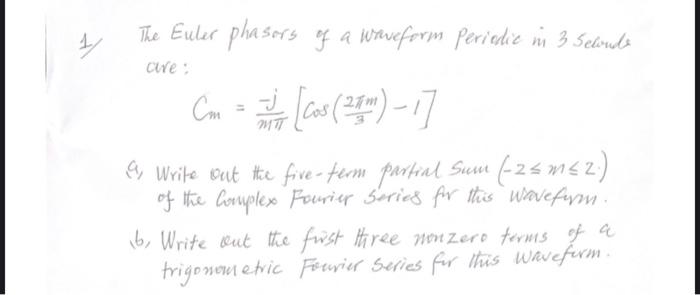 1/ The Euler phasors of a waveform Periodic in 3 Seconds
are :
Cm = -j/mπ [Cos(2πm/3) - 1]
a, Write out the five-term partial Sum (-2 ≤ m ≤ 2.)
of the Complex Fourier Series for this waveform.
b, Write out the first three nonzero terms of a
trigonometric Fourier Series for this waveform.